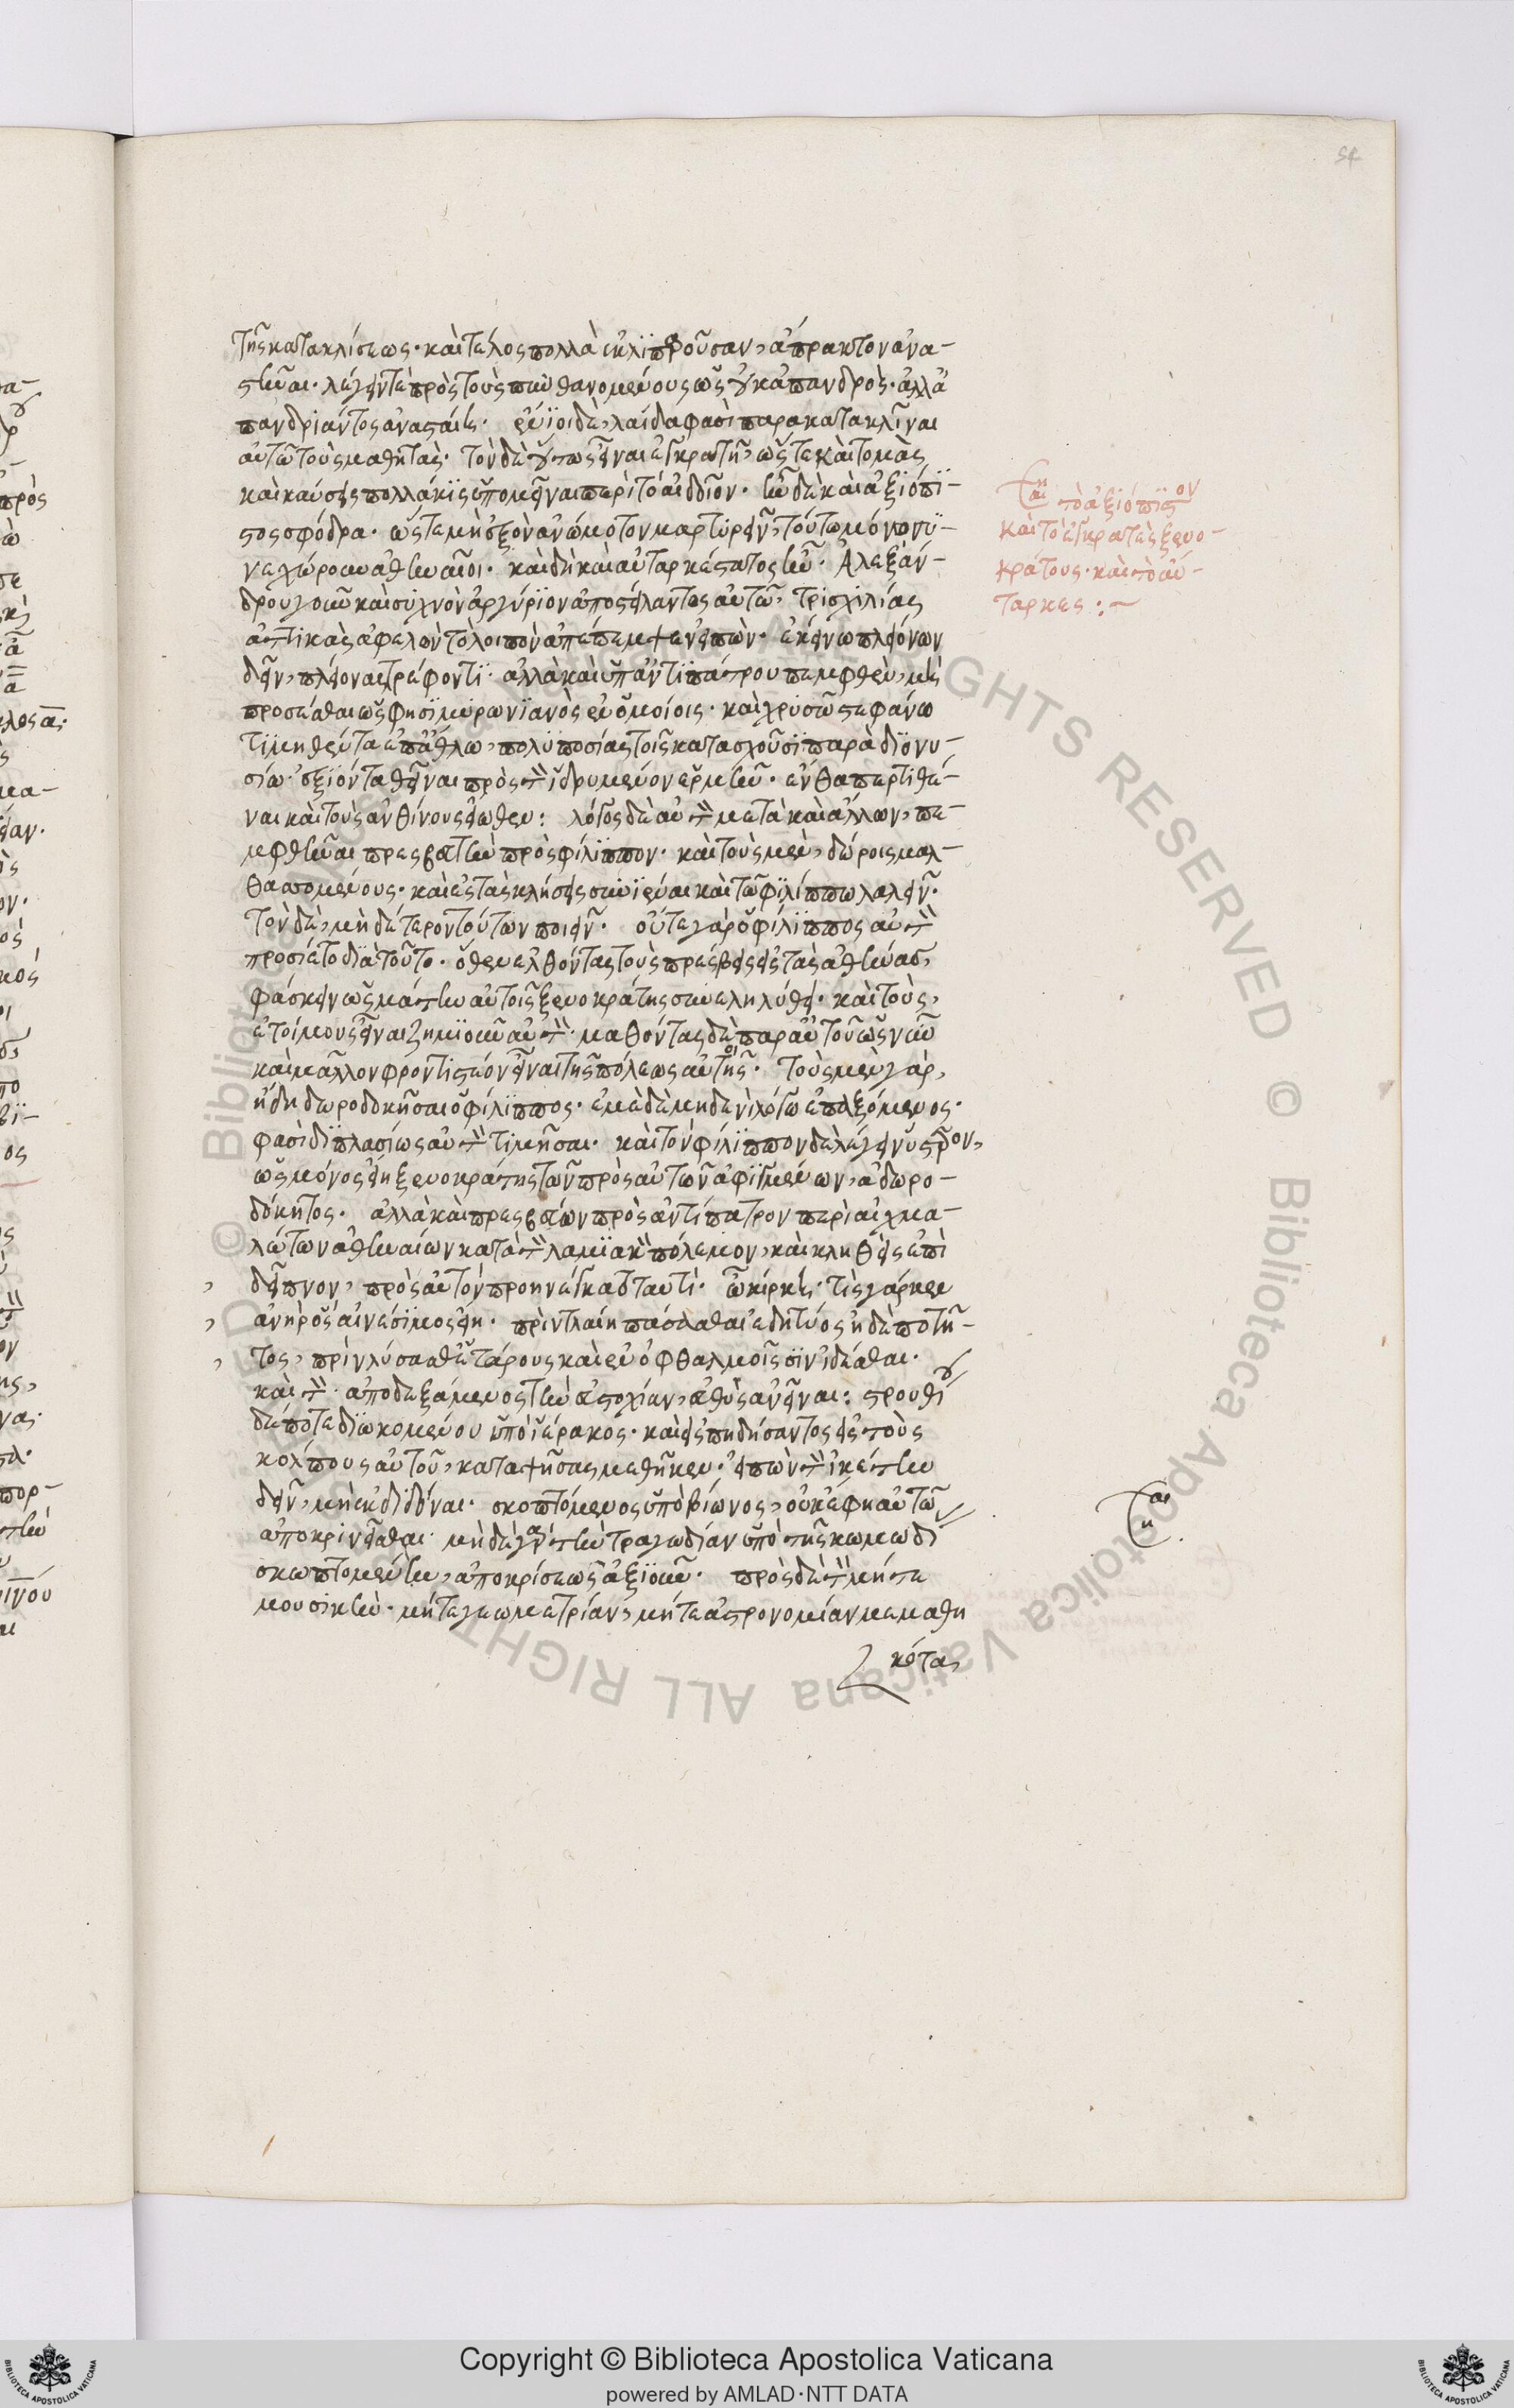 54
τῆς κατακλίσεως· καὶ τέλος πολλὰ ἐκλϊπαροῦσαν, ἄπρακτον ἀνα-
στῆναι· λέγειν τὲ πρὸς τοὺς πυνθανομένους ὡς οὐκ ἀπ' ἀνδρὸς· ἀλλ' ἀ
π' ἀνδριάντος ἀνασταίη· ἔνϊοι δὲ, λαΐδα φασὶ παρακατακλῖναι
αὐτῷ τοὺς μαθητάς· τὸν δὲ οὕτως εἶναι ἐγκρατῆ, ὥστε καὶ τομὰς
καὶ καύσεις πολλάκϊς ὑπομεῖναι περὶ τὸ αἰδοῖον· ἦν δὲ καὶ ἀξιόπϊ-
στος σφόδρα· ὥστε μὴ ἐξὸν ἀνώμοτον μαρτυρεῖν, τούτῳ μόνῳ συ-
νεχώρουν ἀθηναῖοι· καὶ δὴ καὶ αὐταρκέστατος ἦν· Ἀλεξάν-
δρου γοῦν καὶ συχνὸν ἀργύρϊον ἀποστείλαντος αὐτῷ, τρισχιλίας
ἀττικὰς ἀφελὼν τὸ λοιπὸν ἀπέπεμψεν εἰπὼν· ἐκείνῳ πλειόνων
δεῖν, πλείονας τρέφοντϊ· ἀλλὰ καὶ ὑπ' ἀντϊπάτρου πεμφθὲν, μὴ
προσέσθαι ὥς φησϊ μυρωνϊανὸς ἐν ὁμοίοις· καὶ χρυσῷ στεφάνῳ
τϊμηθέντα ἐπάθλῳ, πολϋποσίας τοῖς κατασχοῦσϊ παρὰ δϊονυ-
σίῳ· ἐξϊόντα θεῖναι πρὸς τὸν ἱδρυμένον ἑρμῆν· ἔνθαπερ τιθέ-
ναι καὶ τοὺς ἀνθίνους εἴωθεν: λόγος δὲ αὐτὸν μετὰ καὶ ἄλλων, πε-
μφθῆναι πρεσβευτὴν πρὸς φίλϊππον· καὶ τοὺς μὲν, δώροις μαλ-
θασσομένους· καὶ ἐς τὰς κλήσεις συνϊέναι καὶ τῷ φϊλίππῳ λαλεῖν·
τὸν δὲ, μηδέτερον τούτων ποιεῖν· οὔτε γὰρ ὁ φίλϊππος αὐτὸν
προσίετο διὰ τοῦτο· ὅθεν ἐλθόντας τοὺς πρέσβεις εἰς τὰς ἀθήνας,
φάσκειν ὡς μάτην αὐτοῖς ξενοκράτης συνεληλύθει· καὶ τοὺς,
ἑτοίμους εἶναι ζημϊοῦν αὐτὸν· μαθόντας δὲ παρ' αὐτοῦ ὡς νῦν
καὶ μᾶλλον φροντιστέον εἶναι τῆς πόλεως αὐτοῖς· τοὺς μὲν γὰρ,
ᾔδη δωροδοκήσας ὁ φίλϊππος· ἐμὲ δὲ μηδενὶ λόγῳ ἐπαξόμενος·
φασὶ δϊπλασίως αὐτὸν τϊμῆσαι· καὶ τὸν φίλϊππον δὲ λέγειν ὕστερον,
ὡς μόνος εἴη ξενοκράτης τῶν πρὸς αὐτὸν ἀφϊγμένων, ἀδωρο-
δόκητος· ἀλλὰ καὶ πρεσβεύων πρὸς ἀντίπατρον περὶ αἰχμα-
λώτων ἀθηναίων κατὰ τὸν λαμϊακὸν πόλεμον, καὶ κληθεὶς ἐπὶ
δεῖπνον, πρὸς αὐτὸν προηνέγκατο ταυτὶ· ὦ κίρκη· τὶς γάρ κεν
ἀνὴρ ὃς ἐναίσϊμος εἴη· πρὶν τλαίη πάσασθαι ἐδητύος ἠδὲ ποτῆ-
τος, πρὶν λύσασθ' ἑτάρους καὶ ἐν ὀφθαλμοῖσϊν ἰδέσθαι·
καὶ τὸν ἀποδεξάμενος τὴν εὐστοχίαν, εὐθὺς ἀνεῖναι: στρουθίου
δέ ποτε διωκομένου ὑπὸ ἱέρακος· καὶ εἰσπηδήσαντος εἰς τοὺς
κόλπους αὐτοῦ, καταψήσας μεθῆκεν· εἰπὼν τὸν ἱκέτην
δεῖν, μὴ ἐκδϊδόναι· σκοπτόμενος ὑπὸ βίωνος, οὐκ ἔφη αὐτῷ
ἀποκρινεῖσθαι· μὴ δὲ γὰρ τὴν τραγωδίαν ὑπὸ τῆς κωμωδίας
σκωπτομένην, ἀποκρίσεως ἀξϊοῦν· πρὸς δὲ τὸν μήτε
μουσικὴν· μήτε γεωμετρίαν, μήτε ἀστρονομίαν μεμαθη
κότα,
ση τὸ ἀξϊόπϊστον
καὶ τὸ ἐγκρατὲς ξενο-
κράτους· καὶ τὸ αὔ-
ταρκες :-
Copyright © Biblioteca Apostolica Vaticana
powered by AMLAD·NTT DATA